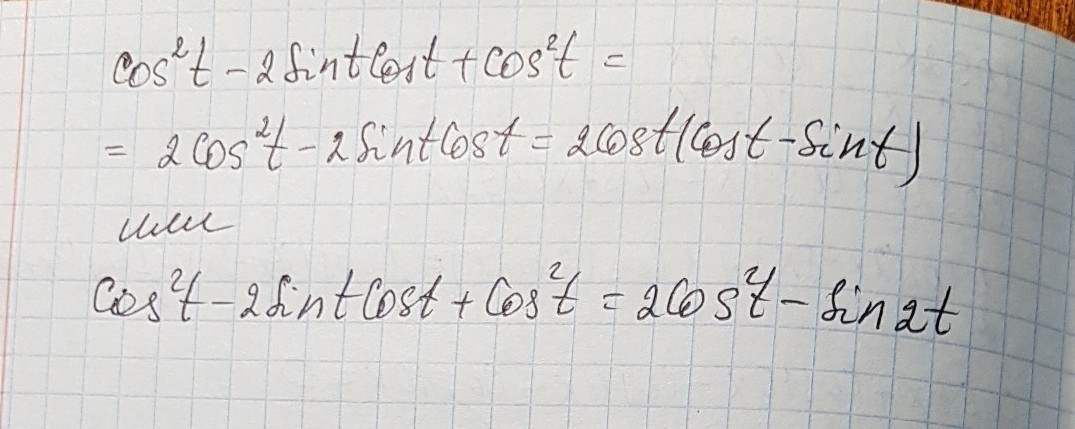 cos²t - 2 sint cost + cos²t =
= 2cos²t - 2 sint cost = 2cost(cost - sint)
или
cos²t - 2 sint cost + cos²t = 2cos²t - sin2t